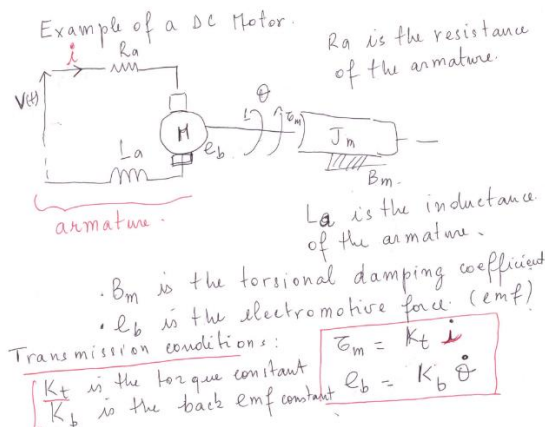 Example of a DC Motor.
i
Ra
Ra is the resistance
of the armature.
V(t)
θ
τm
M
Jm
La
eb
Bm.
armature.
La is the inductance
of the armature.
· Bm is the torsional damping coefficient
· eb is the electromotive force. (emf)
Transmission conditions:
τm = Kt i
Kt is the torque constant
eb = Kb θ̇
Kb is the back emf constant.